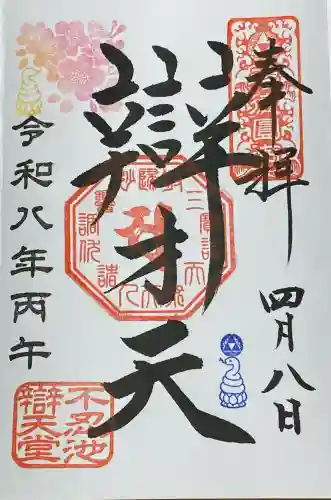 奉拝
四月八日
辯才天
令和八年丙午
不忍池
辯天堂